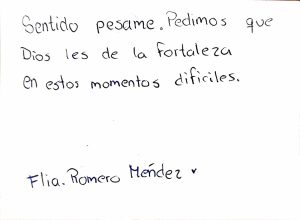 Sentido pesame. Pedimos que
Dios les de la fortaleza
en estos momentos dificiles.
Flia. Romero Méndez